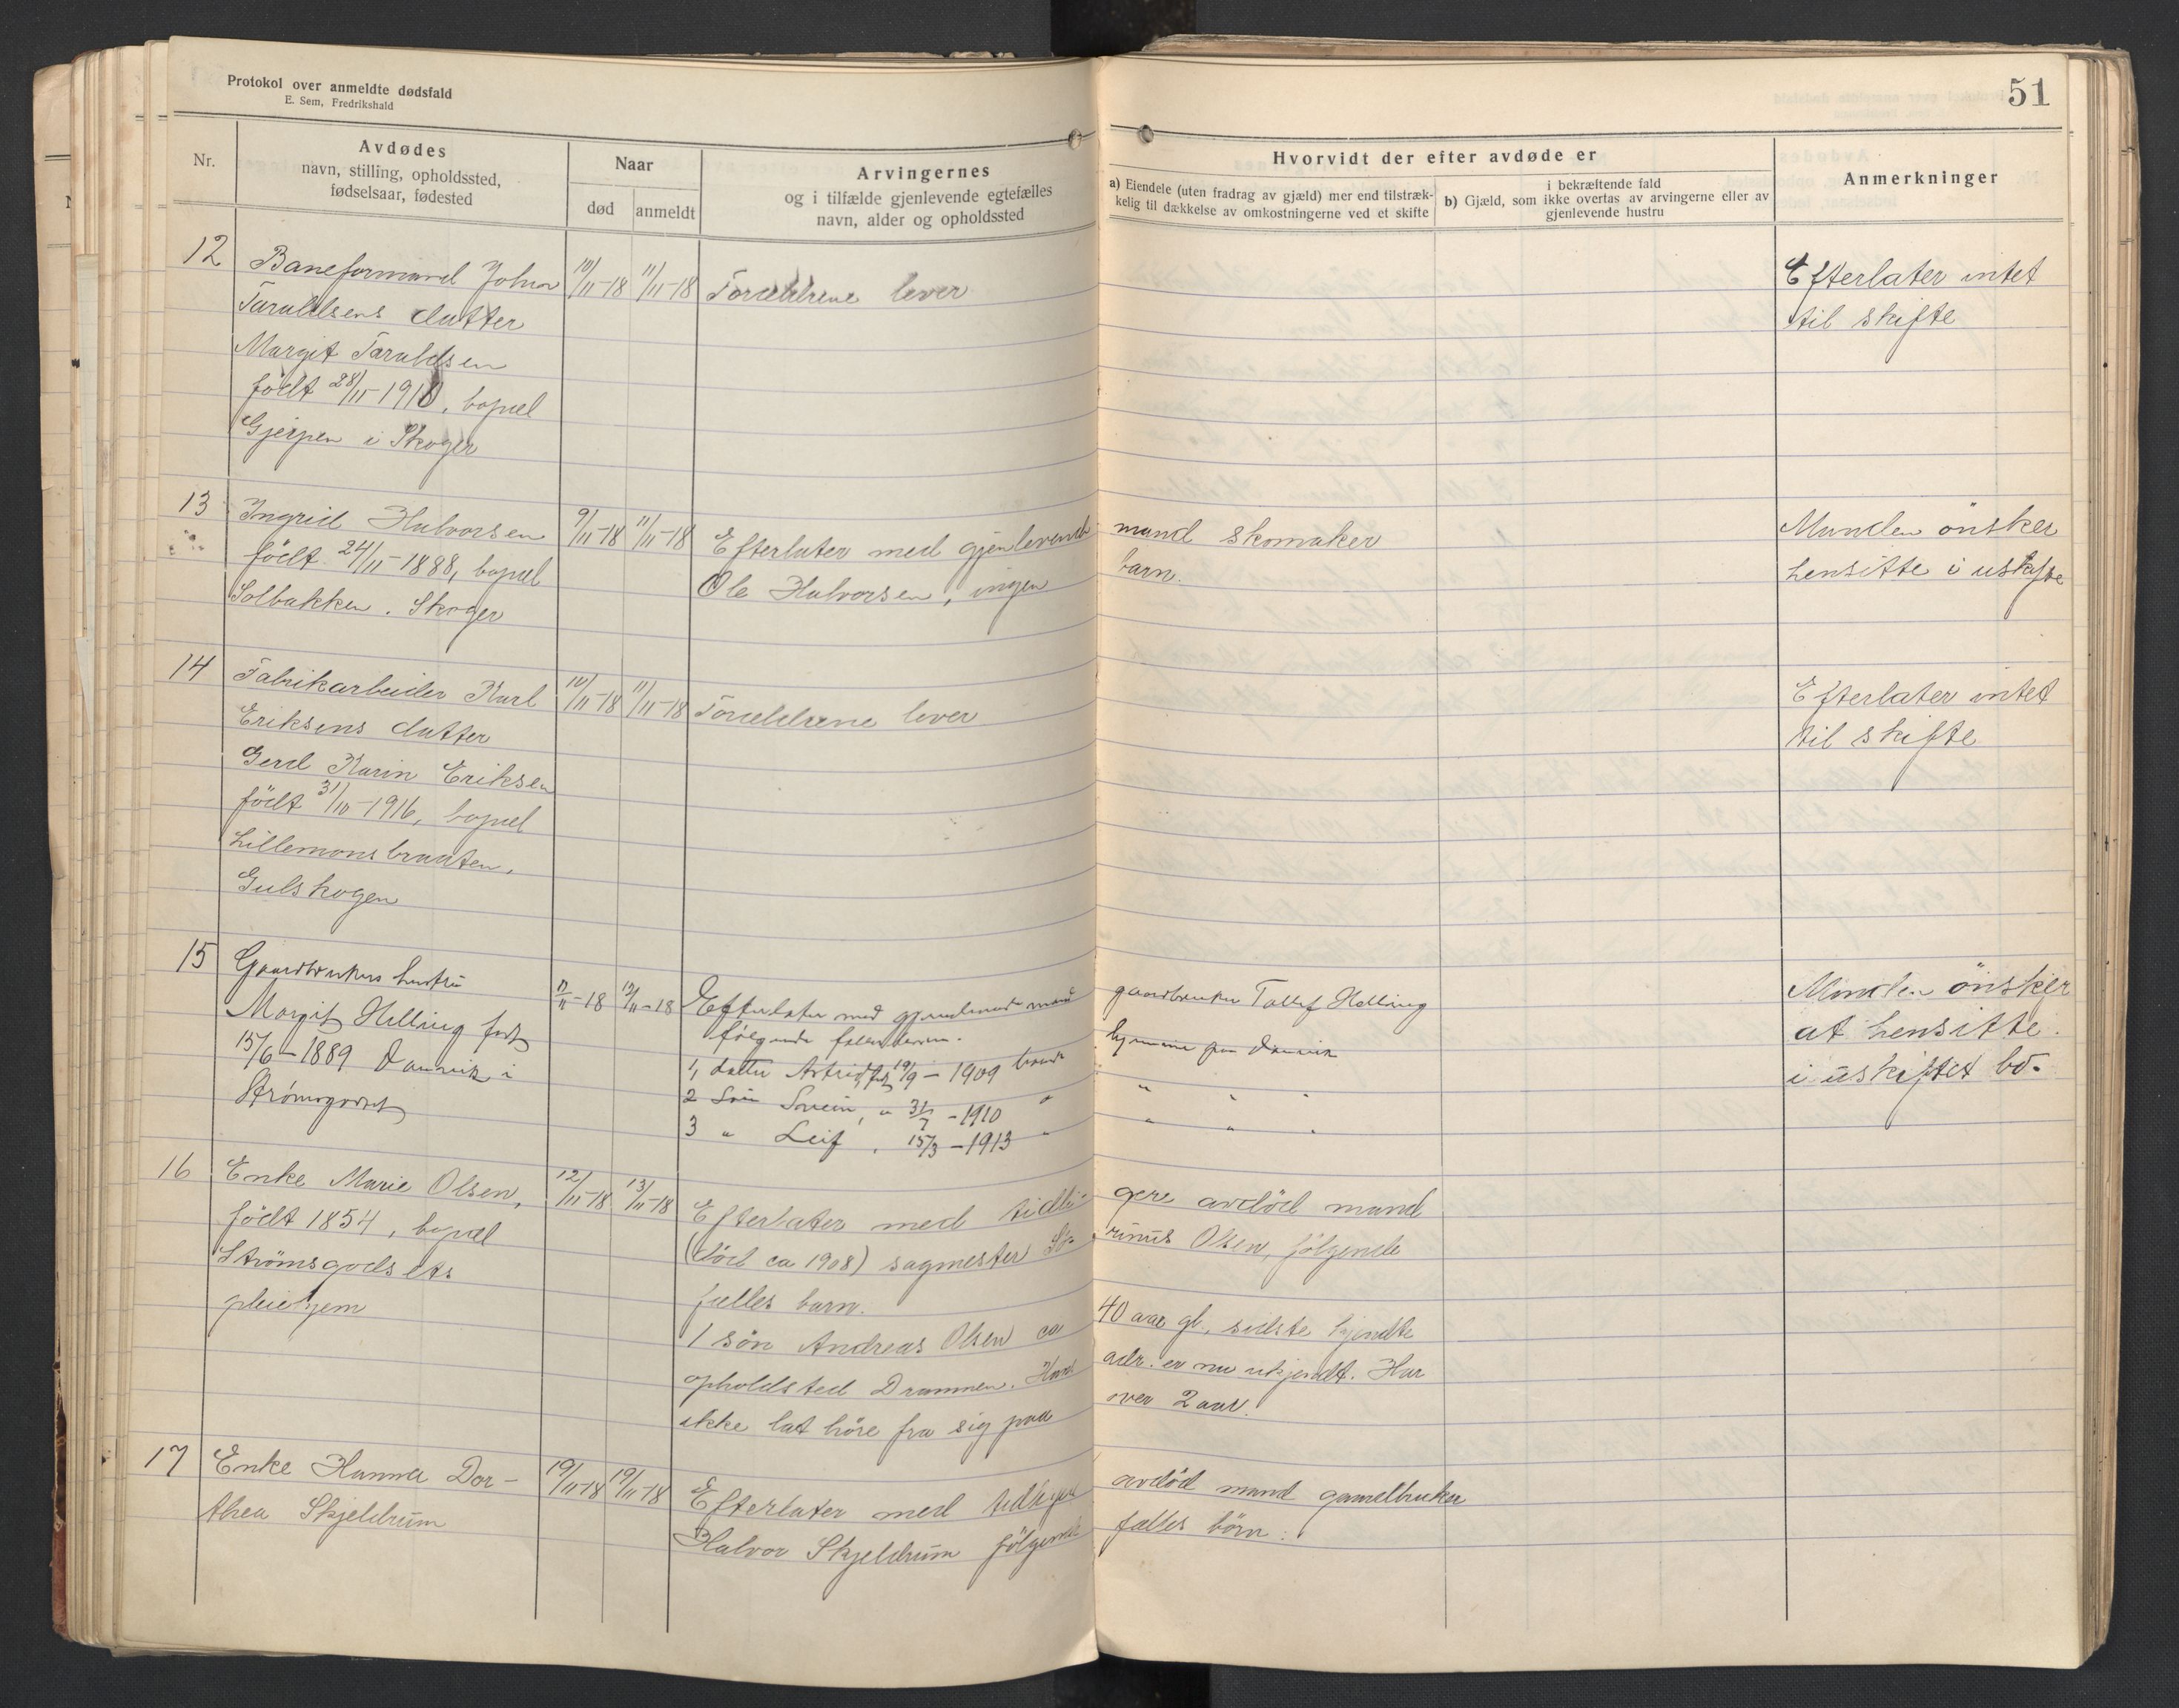 Protokol over anmeldte dødsfald
E. Sem, Fredrikshald
51
Nr.
Avdødes
navn, stilling, opholdssted,
fødselsaar, fødested
Naar
død
anmeldt
Arvingernes
og i tilfælde gjenlevende egtefælles
navn, alder og opholdssted
Hvorvidt der efter avdøde er
a) Eiendele (uten fradrag av gjæld) mer end tilstræk-
kelig til dækkelse av omkostningerne ved et skifte
i bekræftende fald
b) Gjæld, som ikke overtas av arvingerne eller av
gjenlevende hustru
Anmerkninger
12 Baneformand Johan 10/11-18 11/11-18 Forældrene lever Efterlater intet
Taraldsens datter til skifte
Margit Taraldsen
født 28/11-1910, bopæl
Gjerpen i Skoger
13 Ingrid Halvorsen 9/11-18 11/11-18 Efterlater med gjenlevende mand skomaker Manden ønsker
født 24/11-1888, bopæl Ole Halvorsen, ingen barn. hensitte i uskifte
Solbakken. Skoger
14 Fabrikarbeider Karl 10/11-18 11/11-18 Forældrene lever Efterlater intet
Eriksens datter til skifte
Gerd Karin Eriksen
født 31/10-1916, bopæl
Lillemonsbraaten,
Gulskogen
15 Gaardbrukers hustru
Margit Helling født 11-18 12/11-18 Efterlater med gjenlevende mand gaardbruker Tollef Helling Manden ønsker
15/6-1889 Danvik i følgende fælles barn. hjemme paa Danvik at hensitte
Strømsgodset 1, datter Astrid født 19/9-1909 i uskiftet bo.
2 Søn Svein, " 31/7-1910 " " " "
3 " Leif, 15/3-1913 " " " "
16 Enke Marie Olsen, 12/11-18 13/11-18 Efterlater med tidli- gere avdød mand
født 1854, bopæl (død ca 1908) sagmester Se- rinus Olsen, følgende
Strømsgodsets fælles barn.
pleiehjem 1 søn Andreas Olsen ca 40 aar gl., sidste kjendte
opholdsted Drammen. Hans adr. er nu ukjendt. Har
ikke lat høre fra sig paa over 2 aar.
17 Enke Hanna Dor- 19/11-18 19/11-18 Efterlater med tidligere avdød mand gaardbruker
thea Skjeldrum Halvor Skjeldrum følgende fælles børn: